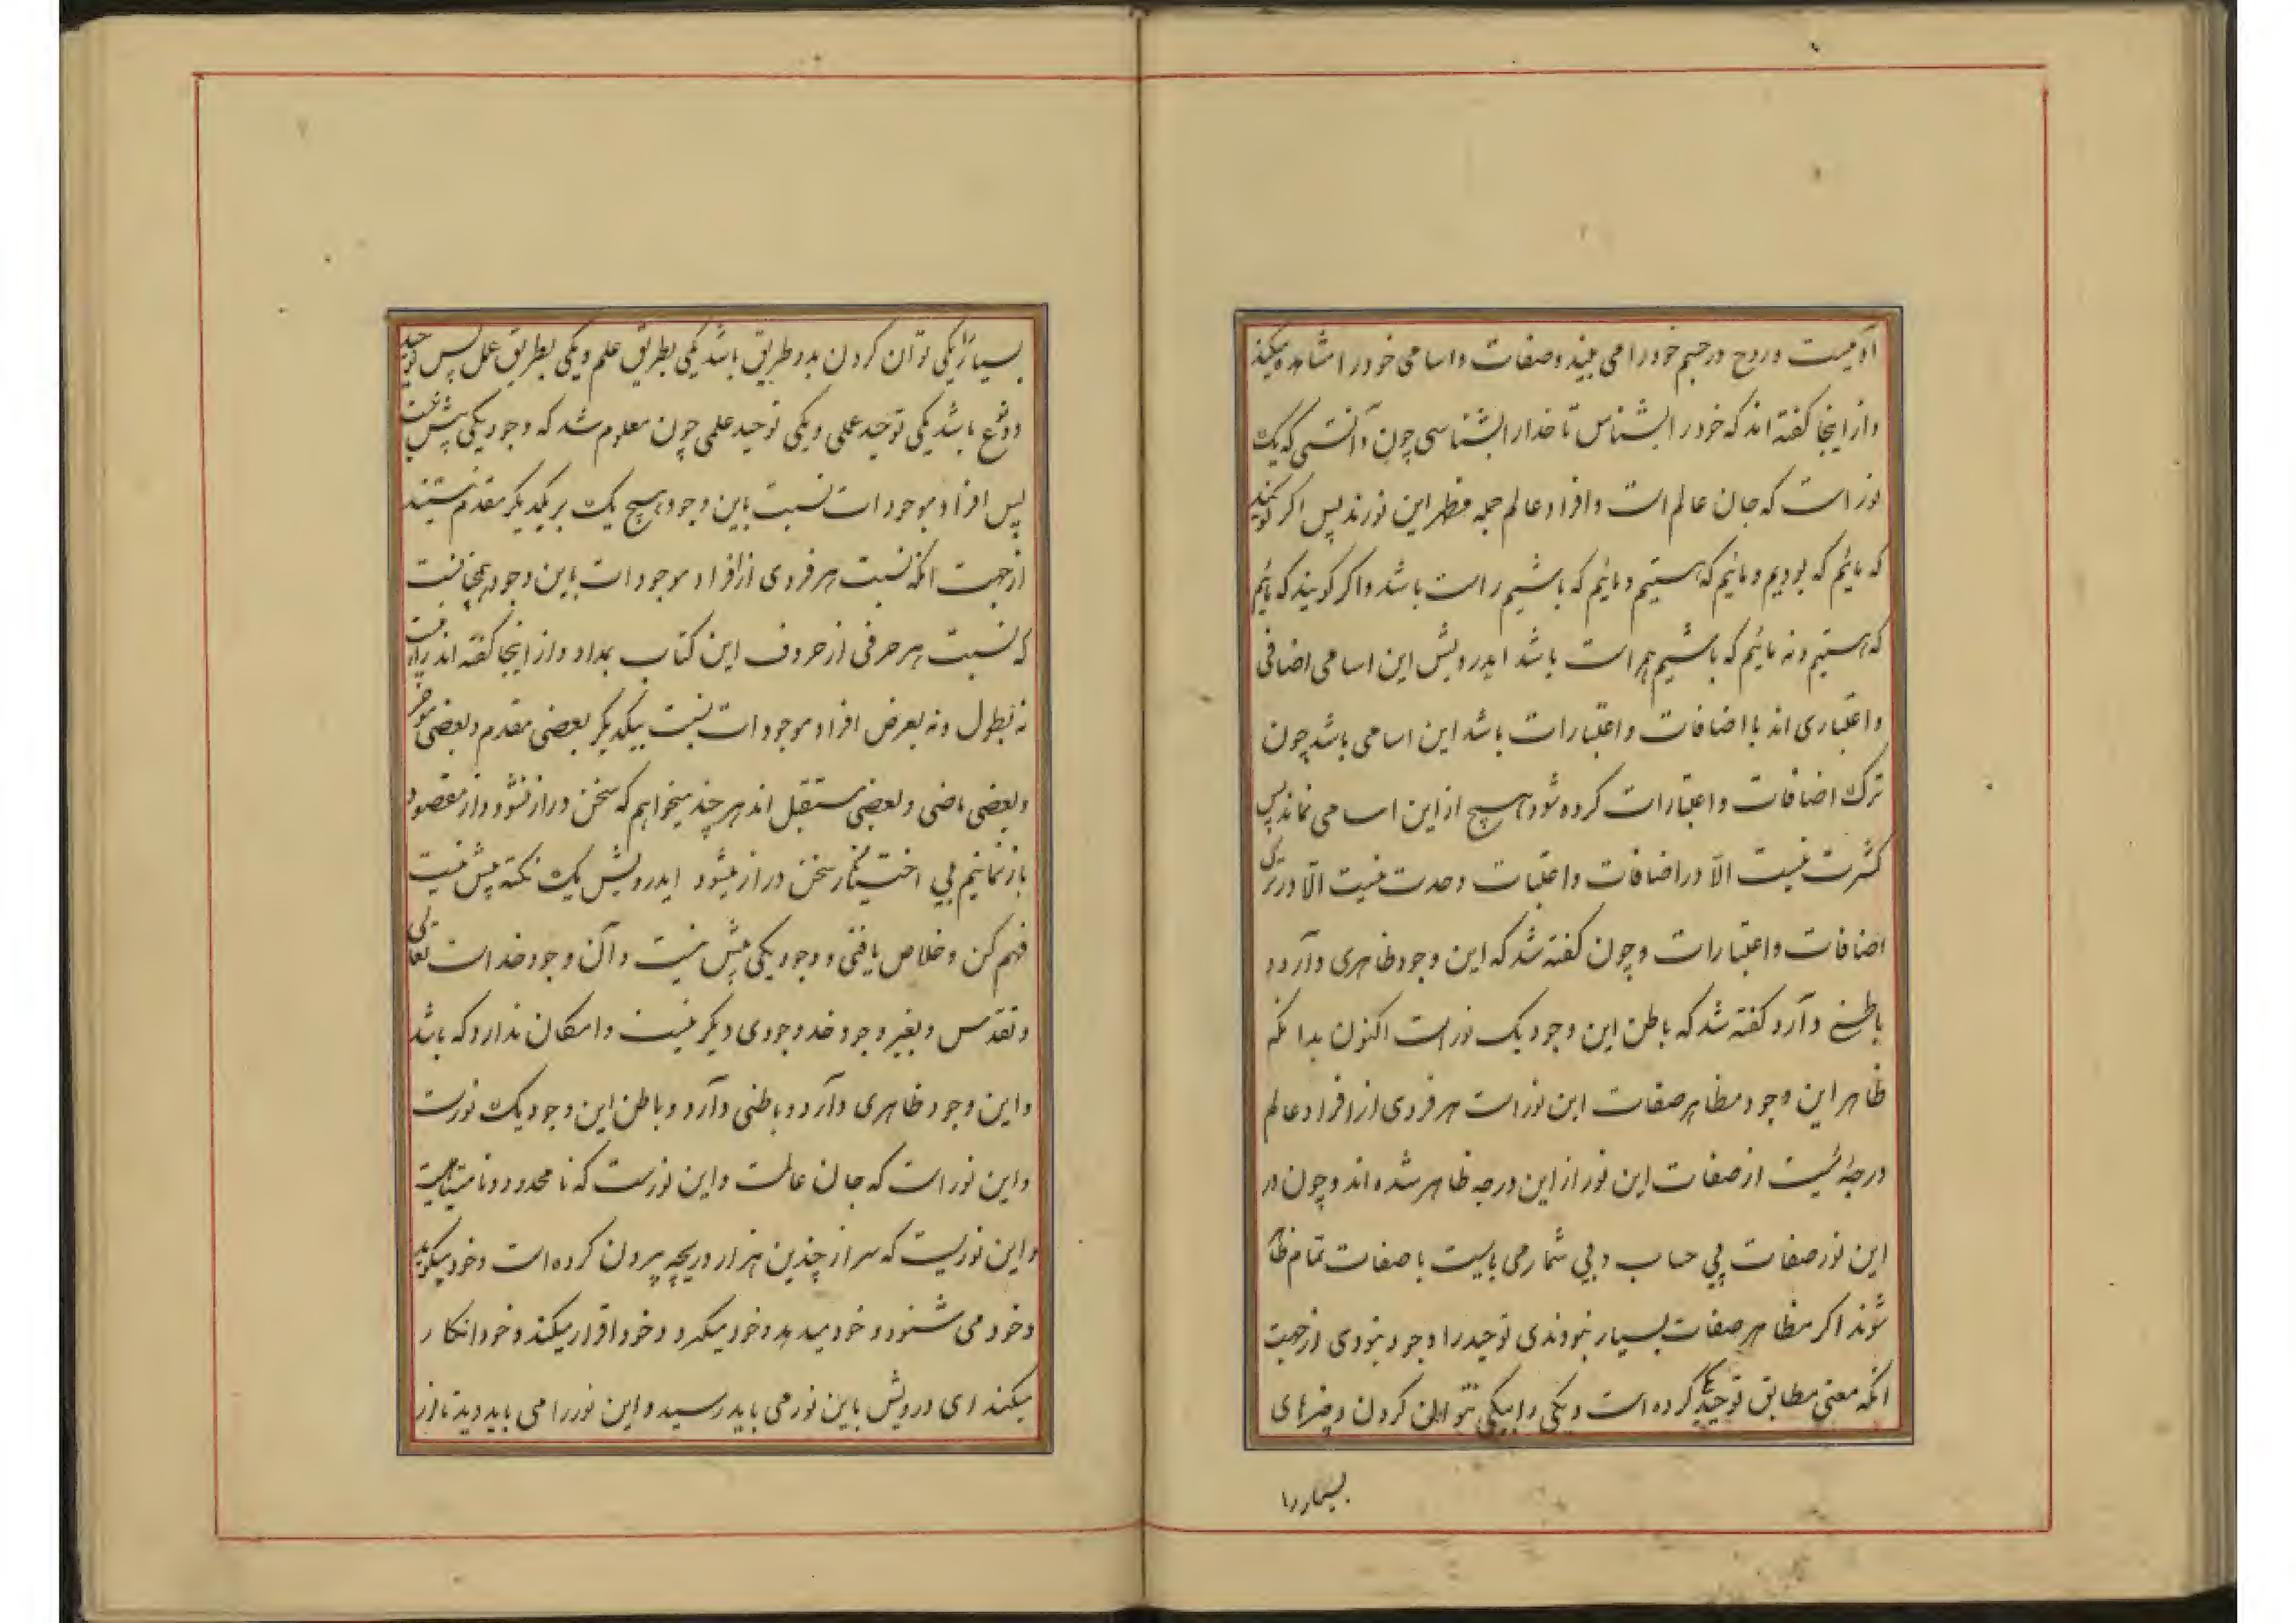 آدمیست و روح در جسم خود را می بیند و صفات و اسامی خود را مشاهده میکند
و از اینجا گفته اند که خود را بشناس تا خدا را بشناسی چون دانستی که یک
نور است که جان عالم است و افراد عالم جمله مظهر این نورند پس اگر گویند
که مائیم که بودیم و مائیم که هستیم و مائیم که باشیم راست باشد و اگر گویند که نه مائیم
که هستیم و نه مائیم که باشیم هم راست باشد ایدرویش این اسامی اضافی
و اعتباری اند با اضافات و اعتبارات باشد این اسامی باشد چون
ترک اضافات و اعتبارات کرده شود هیچ از این اسامی نماند پس
کثرت نیست الا در اضافات و اعتبات وحدت نیست الا در ترک
اضافات و اعتبارات و چون گفته شد که این وجود ظاهری دارد و
باطنی دارد گفته شد که باطن این وجود یک نور است اکنون بدانکه
ظاهر این وجود مظاهر صفات این نور است هر فردی از افراد عالم
دریچهٔ ئیست از صفات این نور از این دریچه ظاهر شده اند و چون در
این نور صفات بی حساب و بی شمار می بایست با صفات تمام ظاهر
شوند اگر مظاهر صفات بسیار نبودندی توحید را وجود نبودی از جهت
آنکه معنی مطابق توحید یکی کرده است و یکی را بیکی نتوان کردن و چیزهای
بسیار را
بسیار را یکی توان کردن بدو طریق باشد یکی بطریق علم و یکی بطریق عمل پس توحید
دو نوع باشد یکی توحید علمی و یکی توحید عملی چون معلوم شد که وجود یکی بیش نیست
پس افراد موجودات نسبت باین وجود هیچ یک بر یکدیگر مقدم نیستند
از جهت آنکه نسبت هر فردی از افراد موجودات باین وجود همچنانست
که نسبت هر حرفی از حروف این کتاب بمداد و از اینجا گفته اند راه نیست
نه بطول و نه بعرض افراد موجودات نسبت بیکدیگر بعضی مقدم و بعضی موخر
و بعضی ماضی و بعضی مستقبل اند هر چند میخواهم که سخن دراز نشود و از مقصود
باز نمانیم بی اختیار سخن دراز میشود ایدرویش یک نکته بیش نیست
فهم کن و خلاص یافتی و وجود یکی بیش نیست و آن وجود خداست تعالی
و تقدس و بغیر وجود خد وجودی دیگر نیست و امکان ندارد که باشد
و این وجود ظاهری دارد و باطنی دارد و باطن این وجود یک نورست
و این نور است که جان عالمست و این نورست که نامحدود و نامتناهیست
و این نوریست که سر از چندین هزار دریچه بیرون کرده است و خود میگوید
و خود می شنود و خود میدهد و خود میگیرد و خود اقرار میکند و خود انکار
میکند ای درویش باین نور می باید رسید و این نور را می باید دید تا از